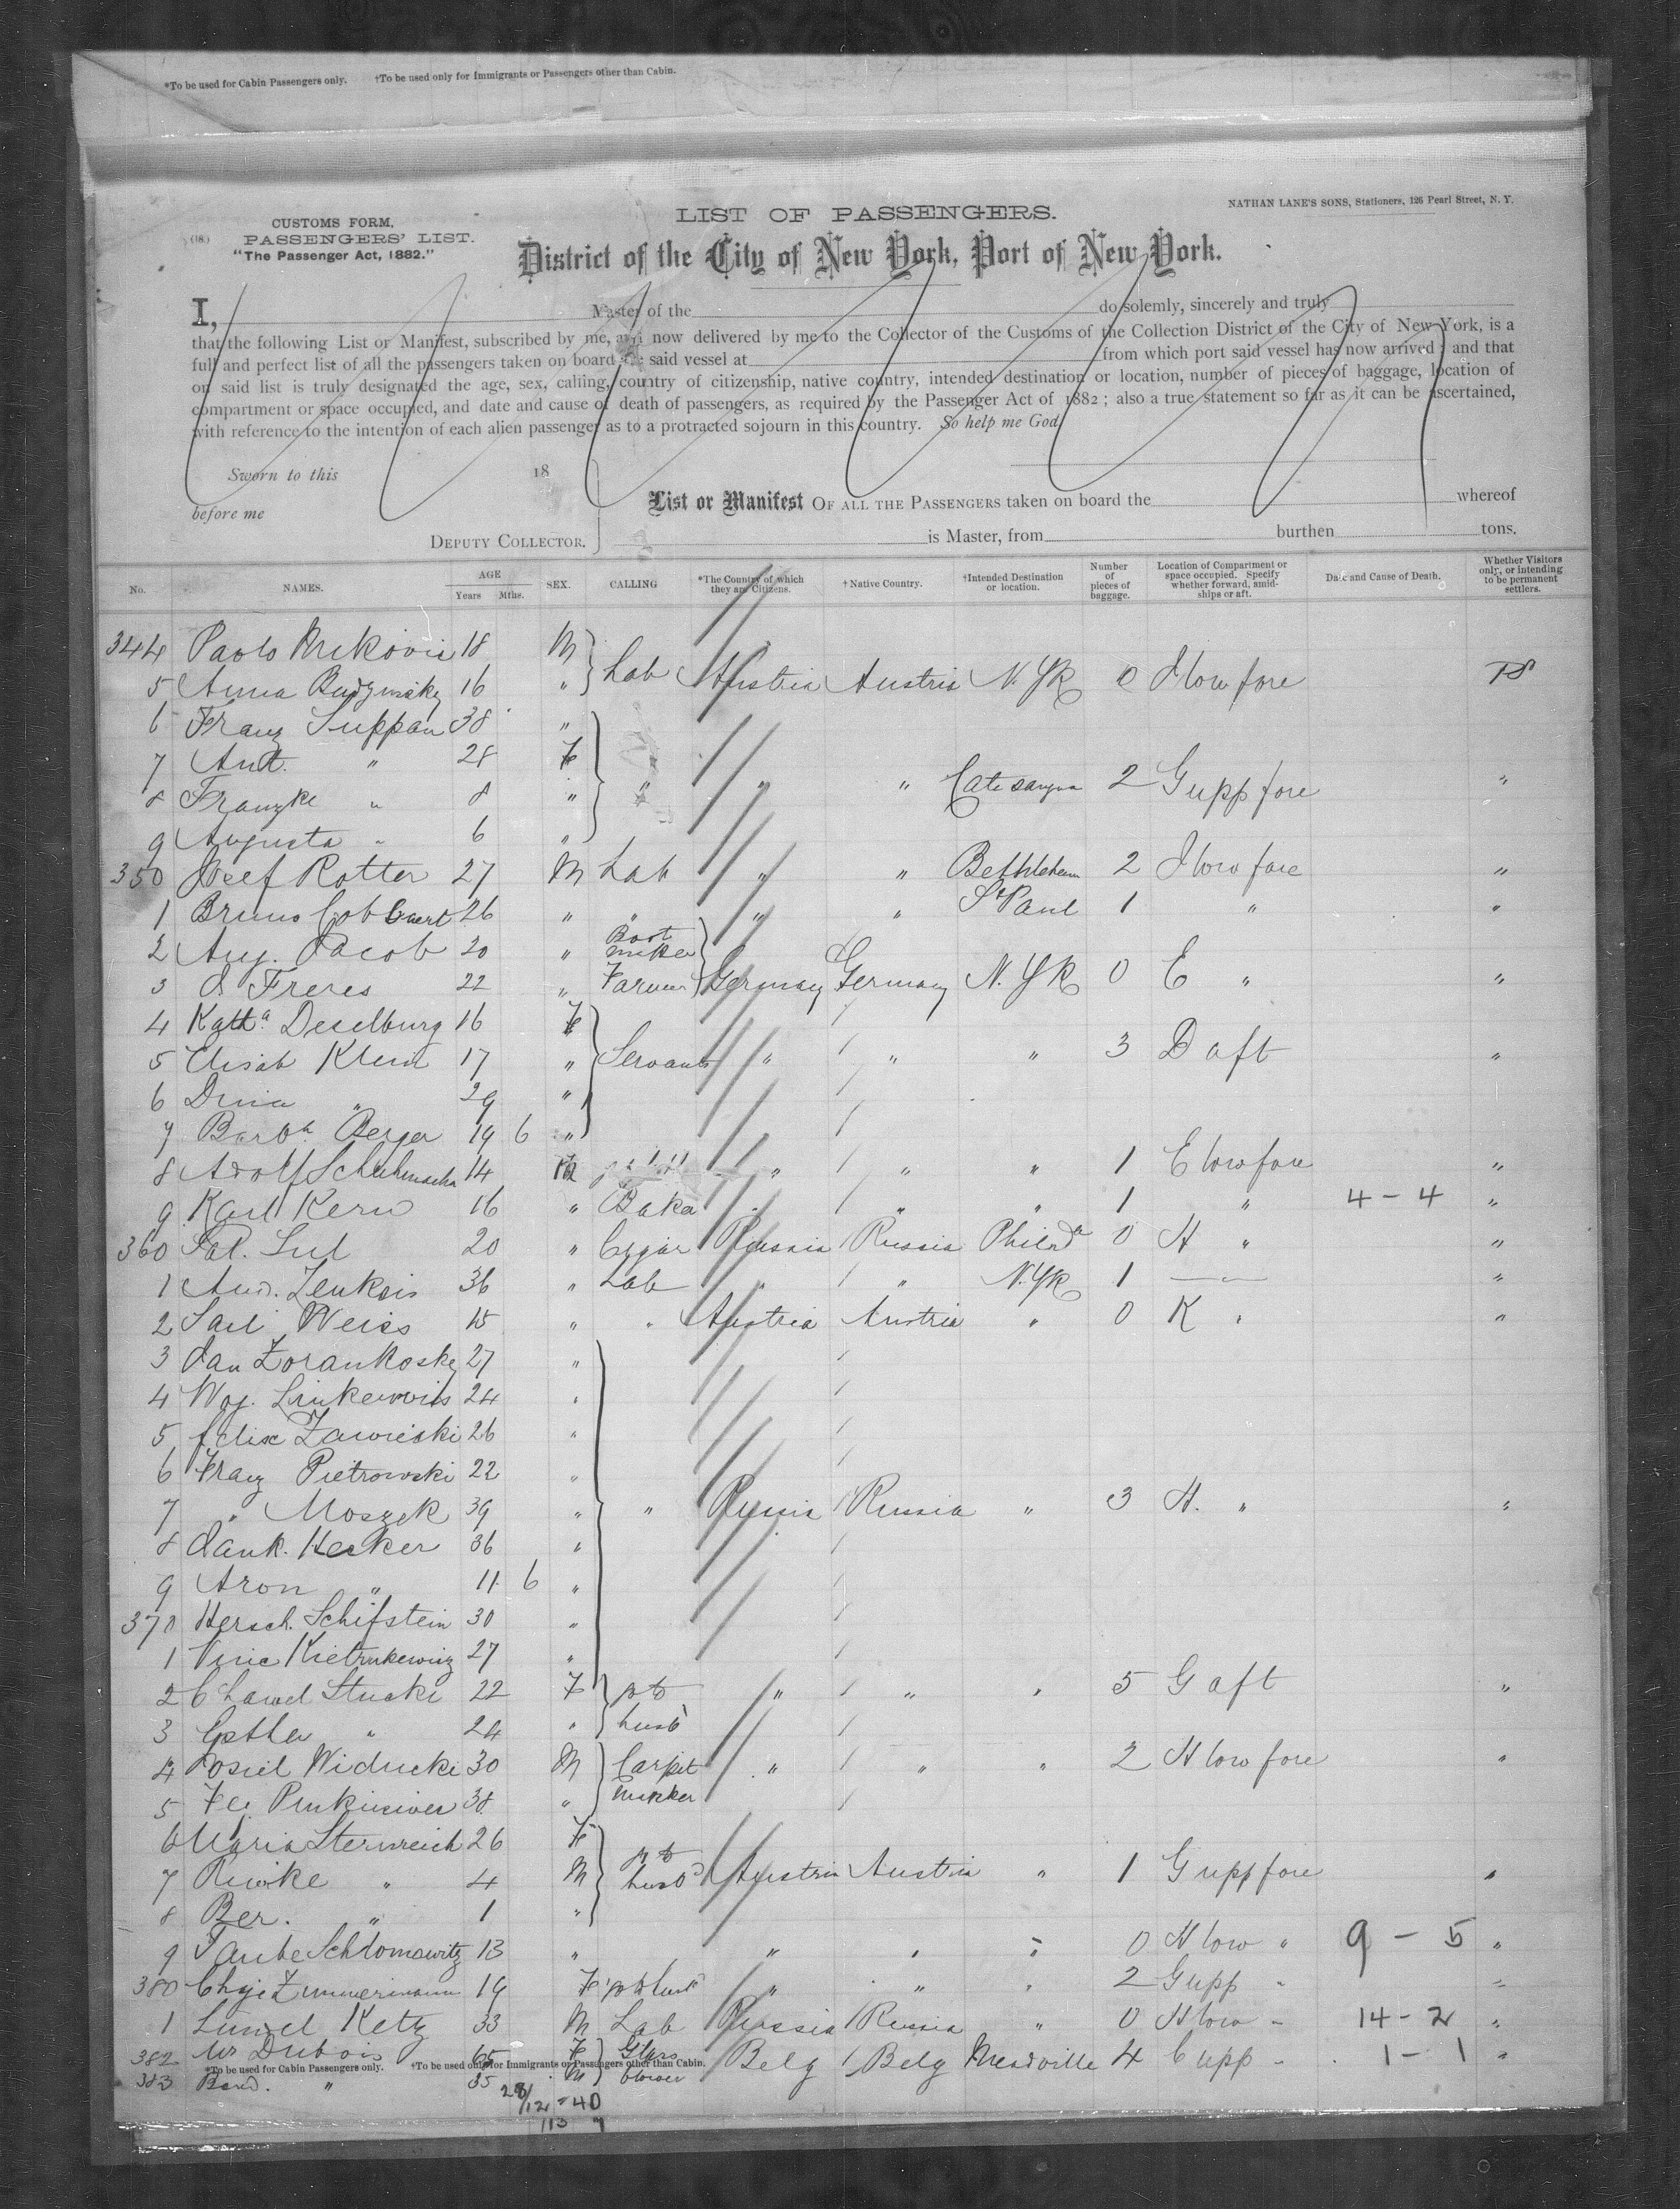 *To be used for Cabin Passengers only. †To be used only for Immigrants or Passengers other than Cabin.
LIST OF PASSENGERS.
NATHAN LANE'S SONS, Stationers, 126 Pearl Street, N. Y.
(18.)
CUSTOMS FORM,
PASSENGERS' LIST.
"The Passenger Act, 1882."
District of the City of New York, Port of New York.
I, Master of the do solemly, sincerely and truly
that the following List or Manifest, subscribed by me, and now delivered by me to the Collector of the Customs of the Collection District of the City of New York, is a
full and perfect list of all the passengers taken on board the said vessel at from which port said vessel has now arrived; and that
on said list is truly designated the age, sex, calling, country of citizenship, native country, intended destination or location, number of pieces of baggage, location of
compartment or space occupied, and date and cause of death of passengers, as required by the Passenger Act of 1882; also a true statement so far as it can be ascertained,
with reference to the intention of each alien passenger as to a protracted sojourn in this country. So help me God
Sworn to this 18
before me
DEPUTY COLLECTOR.
List or Manifest OF ALL THE PASSENGERS taken on board the whereof
is Master, from burthen tons.
No. NAMES. AGE Years Mths. SEX. CALLING *The Country of which they are Citizens. †Native Country. †Intended Destination or location. Number of pieces of baggage. Location of Compartment or space occupied. Specify whether forward, amidships or aft. Date and Cause of Death. Whether Visitors only, or intending to be permanent settlers.
344 Paolo 18 M
5 Anna 16 " Lab Austria Austria N.Yk 0 I low fore PS
6 Franz Suppan 38 "
7 Ant. " 28 F
8 Franzke " 8 " " " " 2 G upp fore "
9 Augusta " 6 "
350 Josef Rotter 27 M Lab " " Bethlehem 2 I low fore "
1 Bruno 26 " " " " St Paul 1 " "
2 Aug. Jacob 20 " Boot maker
3 J. Freres 22 " Farmer Germany Germany N.Yk 0 E " "
4 Katha Deselburg 16 F
5 Elisab Klein 17 " Servants " " " 3 D aft "
6 Dina " 29 "
7 Barba Berger 19 6 "
8 Adolf Schuhmacher 14 M " " " 1 E low fore "
9 Karl Kern 16 " Baker " " " 1 " 4 - 4 "
360 Sal. 20 " Cigar Russia Russia Philada 0 H " "
1 And. 36 " Lab " " N.Yk 1 "
2 Weiss 15 " " Austria Austria " 0 K " "
3 Jan Zorankosky 27 "
4 Woj. 24 "
5 Felix Zawieski 26 "
6 Franz Pietrowski 22 "
7 " Moszek 39 " " Russia Russia " 3 H. " "
8 Jank. Hecker 36 "
9 Aron " 11 6 "
370 Hersch. Schifstein 30 "
1 27 "
2 22 F to " " " 5 G aft "
3 Esther " 24 " husb
4 Widucki 30 M Carpet " " " 2 H low fore "
5 38 " maker
6 Maria Sternreich 26 F
7 Riwke " 4 M to husbd Austria Austria " 1 G upp fore "
8 Ber. " 1 "
9 Taube Schlomowitz 13 " " " " 0 H low " 9 - 5 "
380 Zimmermann 19 F to husbd " " " 2 G upp " "
1 Ketz 33 M Lab Russia Russia " 0 H low " 14 - 2 "
382 Dubois 65 F Glass Belg Belg Meadville 4 C upp " 1 - 1 "
*To be used for Cabin Passengers only. †To be used only for Immigrants or Passengers other than Cabin.
383 " 35 M blower
28/12 = 40
113 "